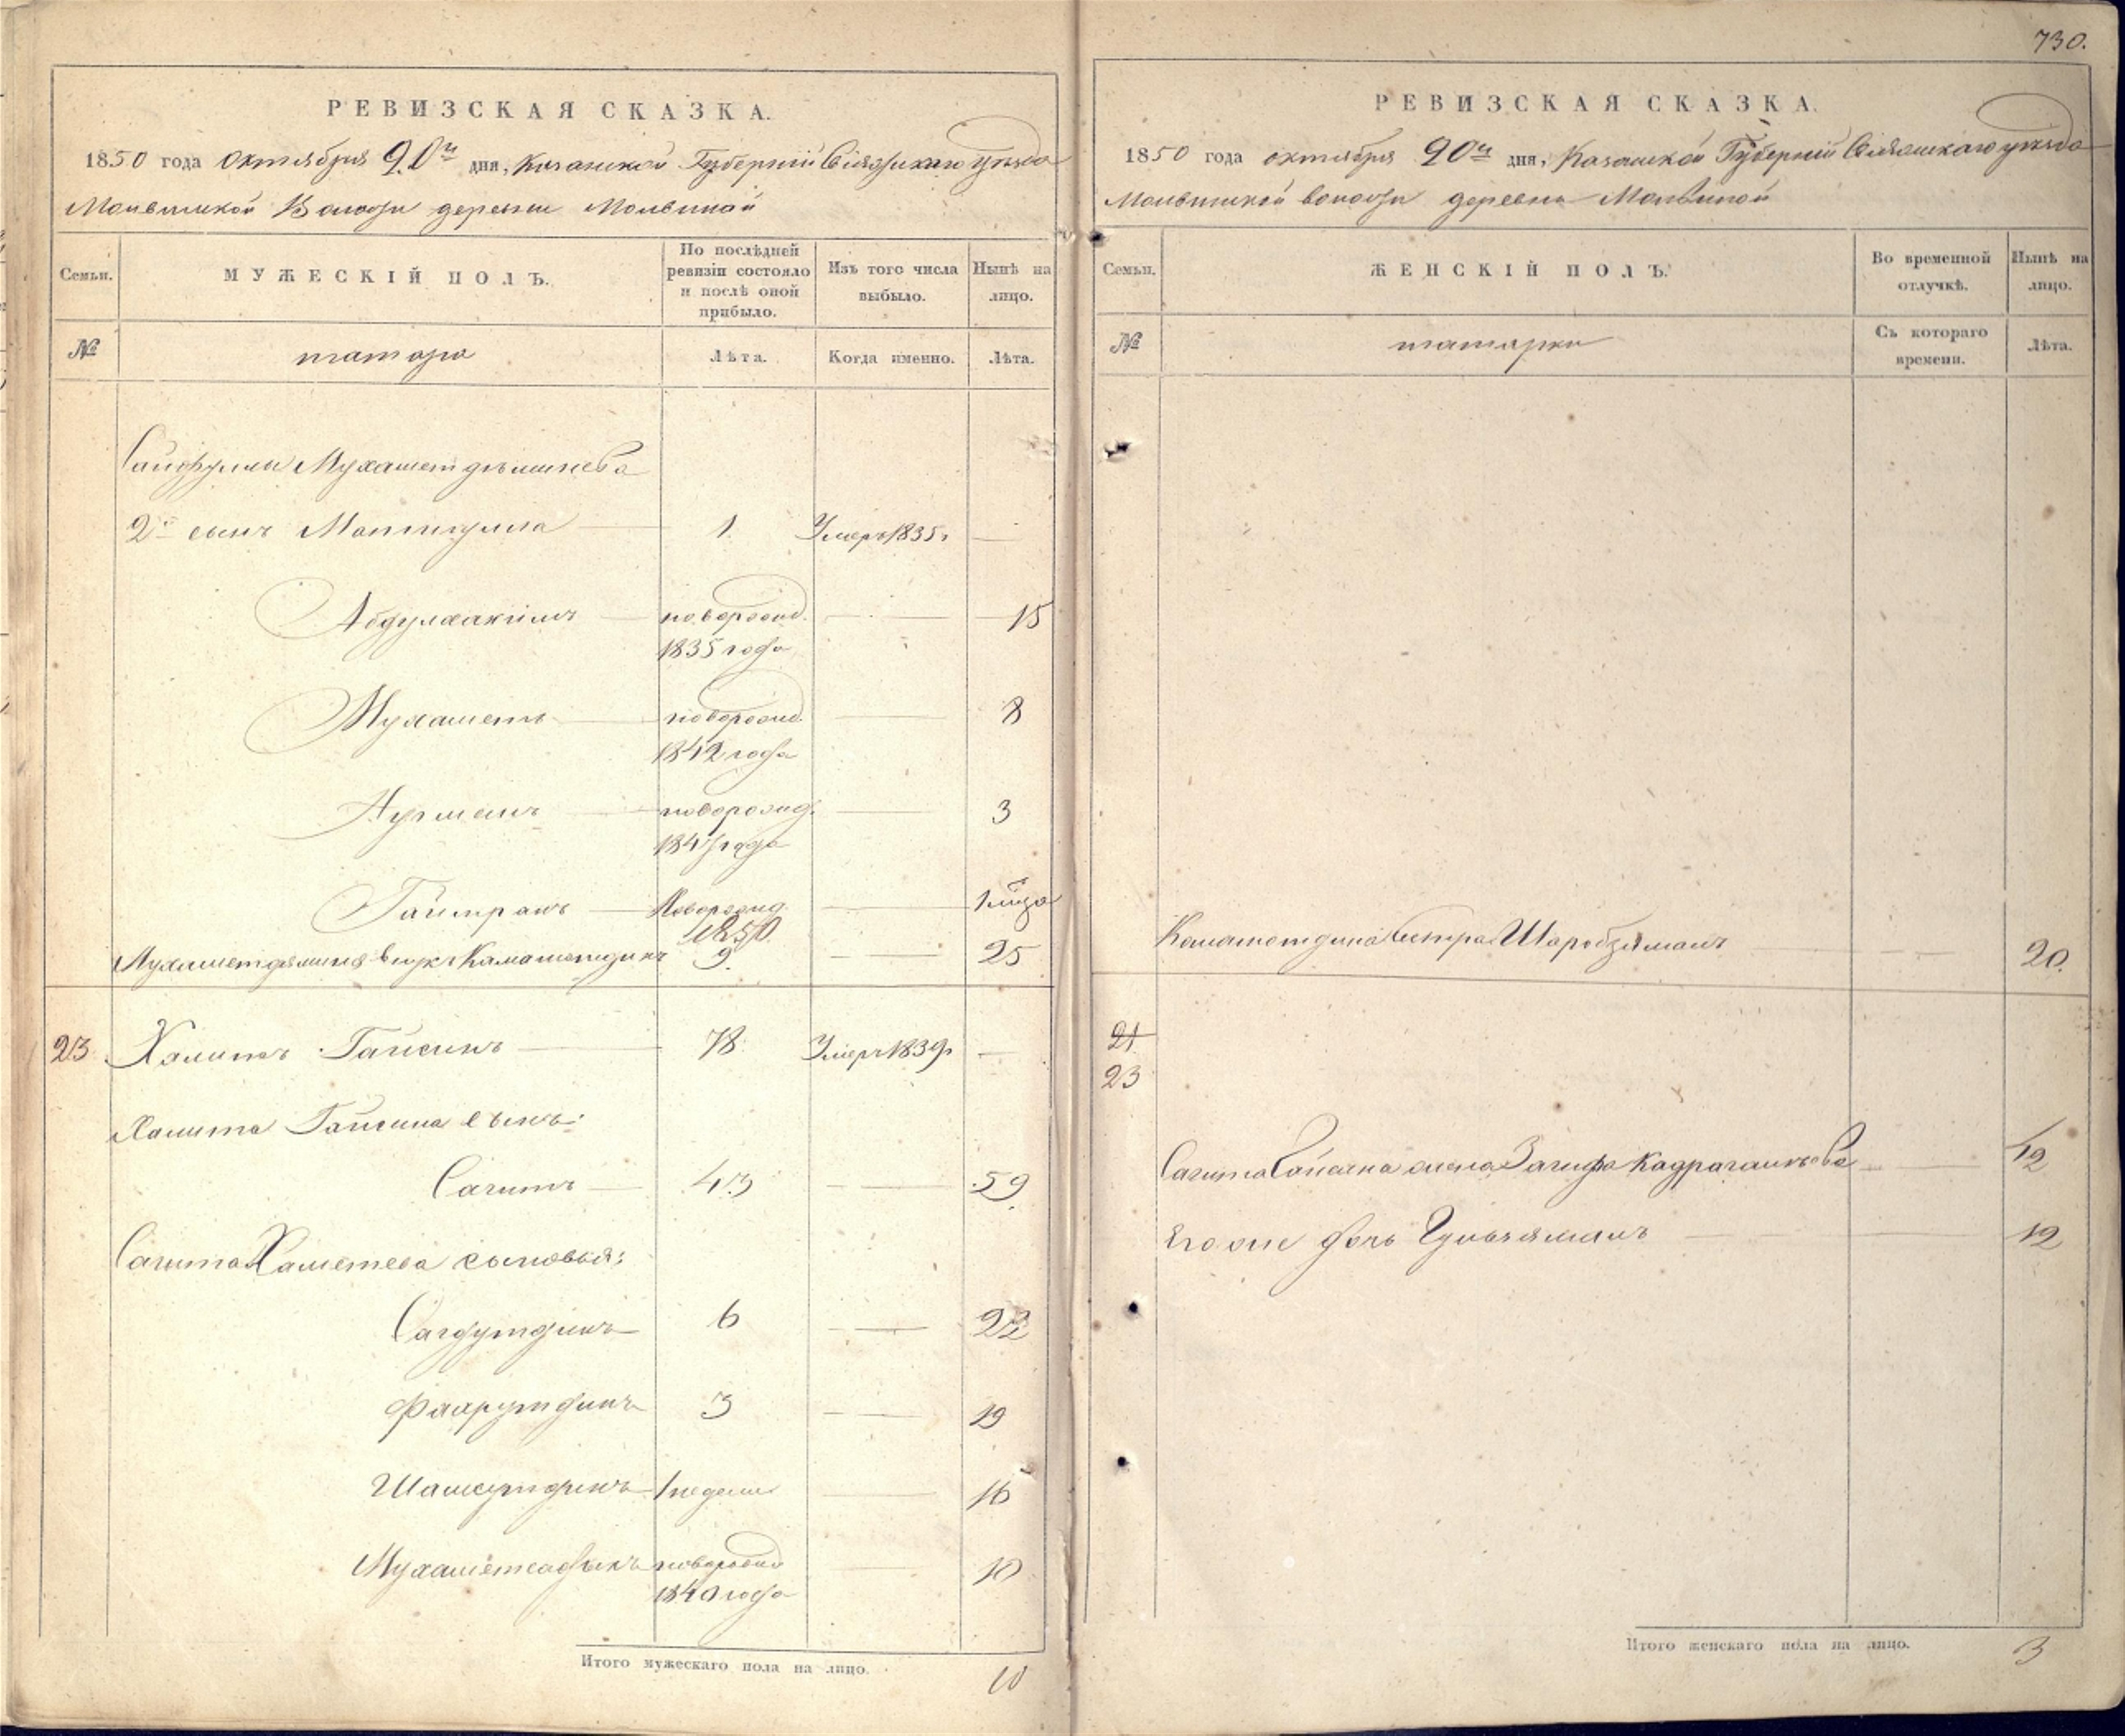 РЕВИЗСКАЯ СКАЗКА.
1850 года октября 20го дня, Казанской Губерніи Свіяжскаго уѣзда
Молвинской Волости деревни Молвиной
Семьи.
МУЖЕСКІЙ ПОЛЪ.
По послѣдней ревизіи состояло и послѣ оной прибыло.
Изъ того числа выбыло.
Нынѣ на лицо.
№
татара
Лѣта.
Когда именно.
Лѣта.
Сайфуллы Мухаметдѣминева
2й сынъ 1. Умеръ 1835г
Абдулхакимъ новорожд. 15
1835 года
Мухаметъ новорожд. 8
1842 года
Нугманъ новорожд. 3
1847 года
новорожд. 1
1850
Мухаметдяминя внукъ Камалетдинъ 9. 25
23 Халитъ Гайсинъ 78 Умеръ 1839г
Халита Гайсина сынъ:
Сагитъ 43 59
Сагита Хаметева сыновья:
Сагдутдинъ 6 22
Фахрутдинъ 3 19
Шамсутдинъ 1 недели 16
Мухаметсадыкъ новорожд 10
1840 года
Итого мужескаго пола на лицо. 10
730.
РЕВИЗСКАЯ СКАЗКА.
1850 года октября 20го дня, Казанской Губерніи Свіяжскаго уѣзда
Молвинской волости деревни Молвиной
Семьи.
ЖЕНСКІЙ ПОЛЪ.
Во временной отлучкѣ.
Нынѣ на лицо.
№
татарки
Съ котораго времени.
Лѣта.
Камалетдина сестра Шаробзямалъ 20.
21
23
Сагита Гайсина жена Загифа 42
Его же дочь Гульзямалъ 12
Итого женскаго пола на лицо. 3